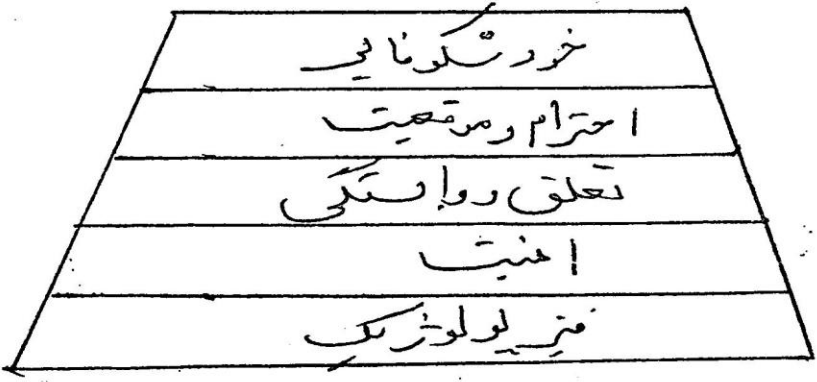 خود شکوفایی
احترام و موقعیت
تعلق و وابستگی
امنیت
فیزیولوژیک